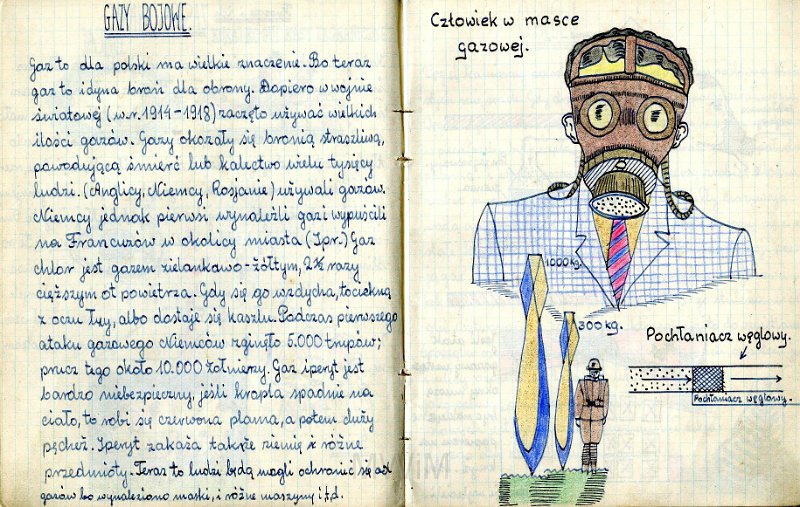 GAZY BOJOWE.
Gaz to dla polski ma wielkie znaczenie. Bo teraz
gaz to idyna broń dla obrony. Dopiero w wojnie
światowej (w.r. 1914-1918) zaczęto używać wielkich
ilości gazów. Gazy okazały się bronią straszliwą,
powodującą śmierć lub kalectwo wielu tysięcy
ludzi. (Anglicy, Niemcy, Rosjanie) używali gazów.
Niemcy jednak pierwsi wynaleźli gaz i wypuścili
na Francuzów w okolicy miasta (Ipr.) Gaz
chlor jest gazem zielankowo-żółtym, 2½ razy
cięższym ot powietrza. Gdy się go wzdycha, to ciekną
z oczu łzy, albo dostaje się kaszlu. Podczas pierwszego
ataku gazowego Niemców zginęło 5.000 trupów;
prucz tego około 10.000 żołnierzy. Gaz iperyt jest
bardzo niebezpieczny, jeśli kropla spadnie na
ciało, to robi się czerwona plama, a potem duży
pęcheż. Iperyt zakaża także ziemię i różne
przedmioty. Teraz to ludzi będą mogli ochronić się od
gazów bo wynaleziono maski, i różne maszyny i t.d.
Człowiek w masce
gazowej.
1000 kg.
300 kg.
Pochłaniacz węglowy.
Pochłaniacz węglowy.
MWiM